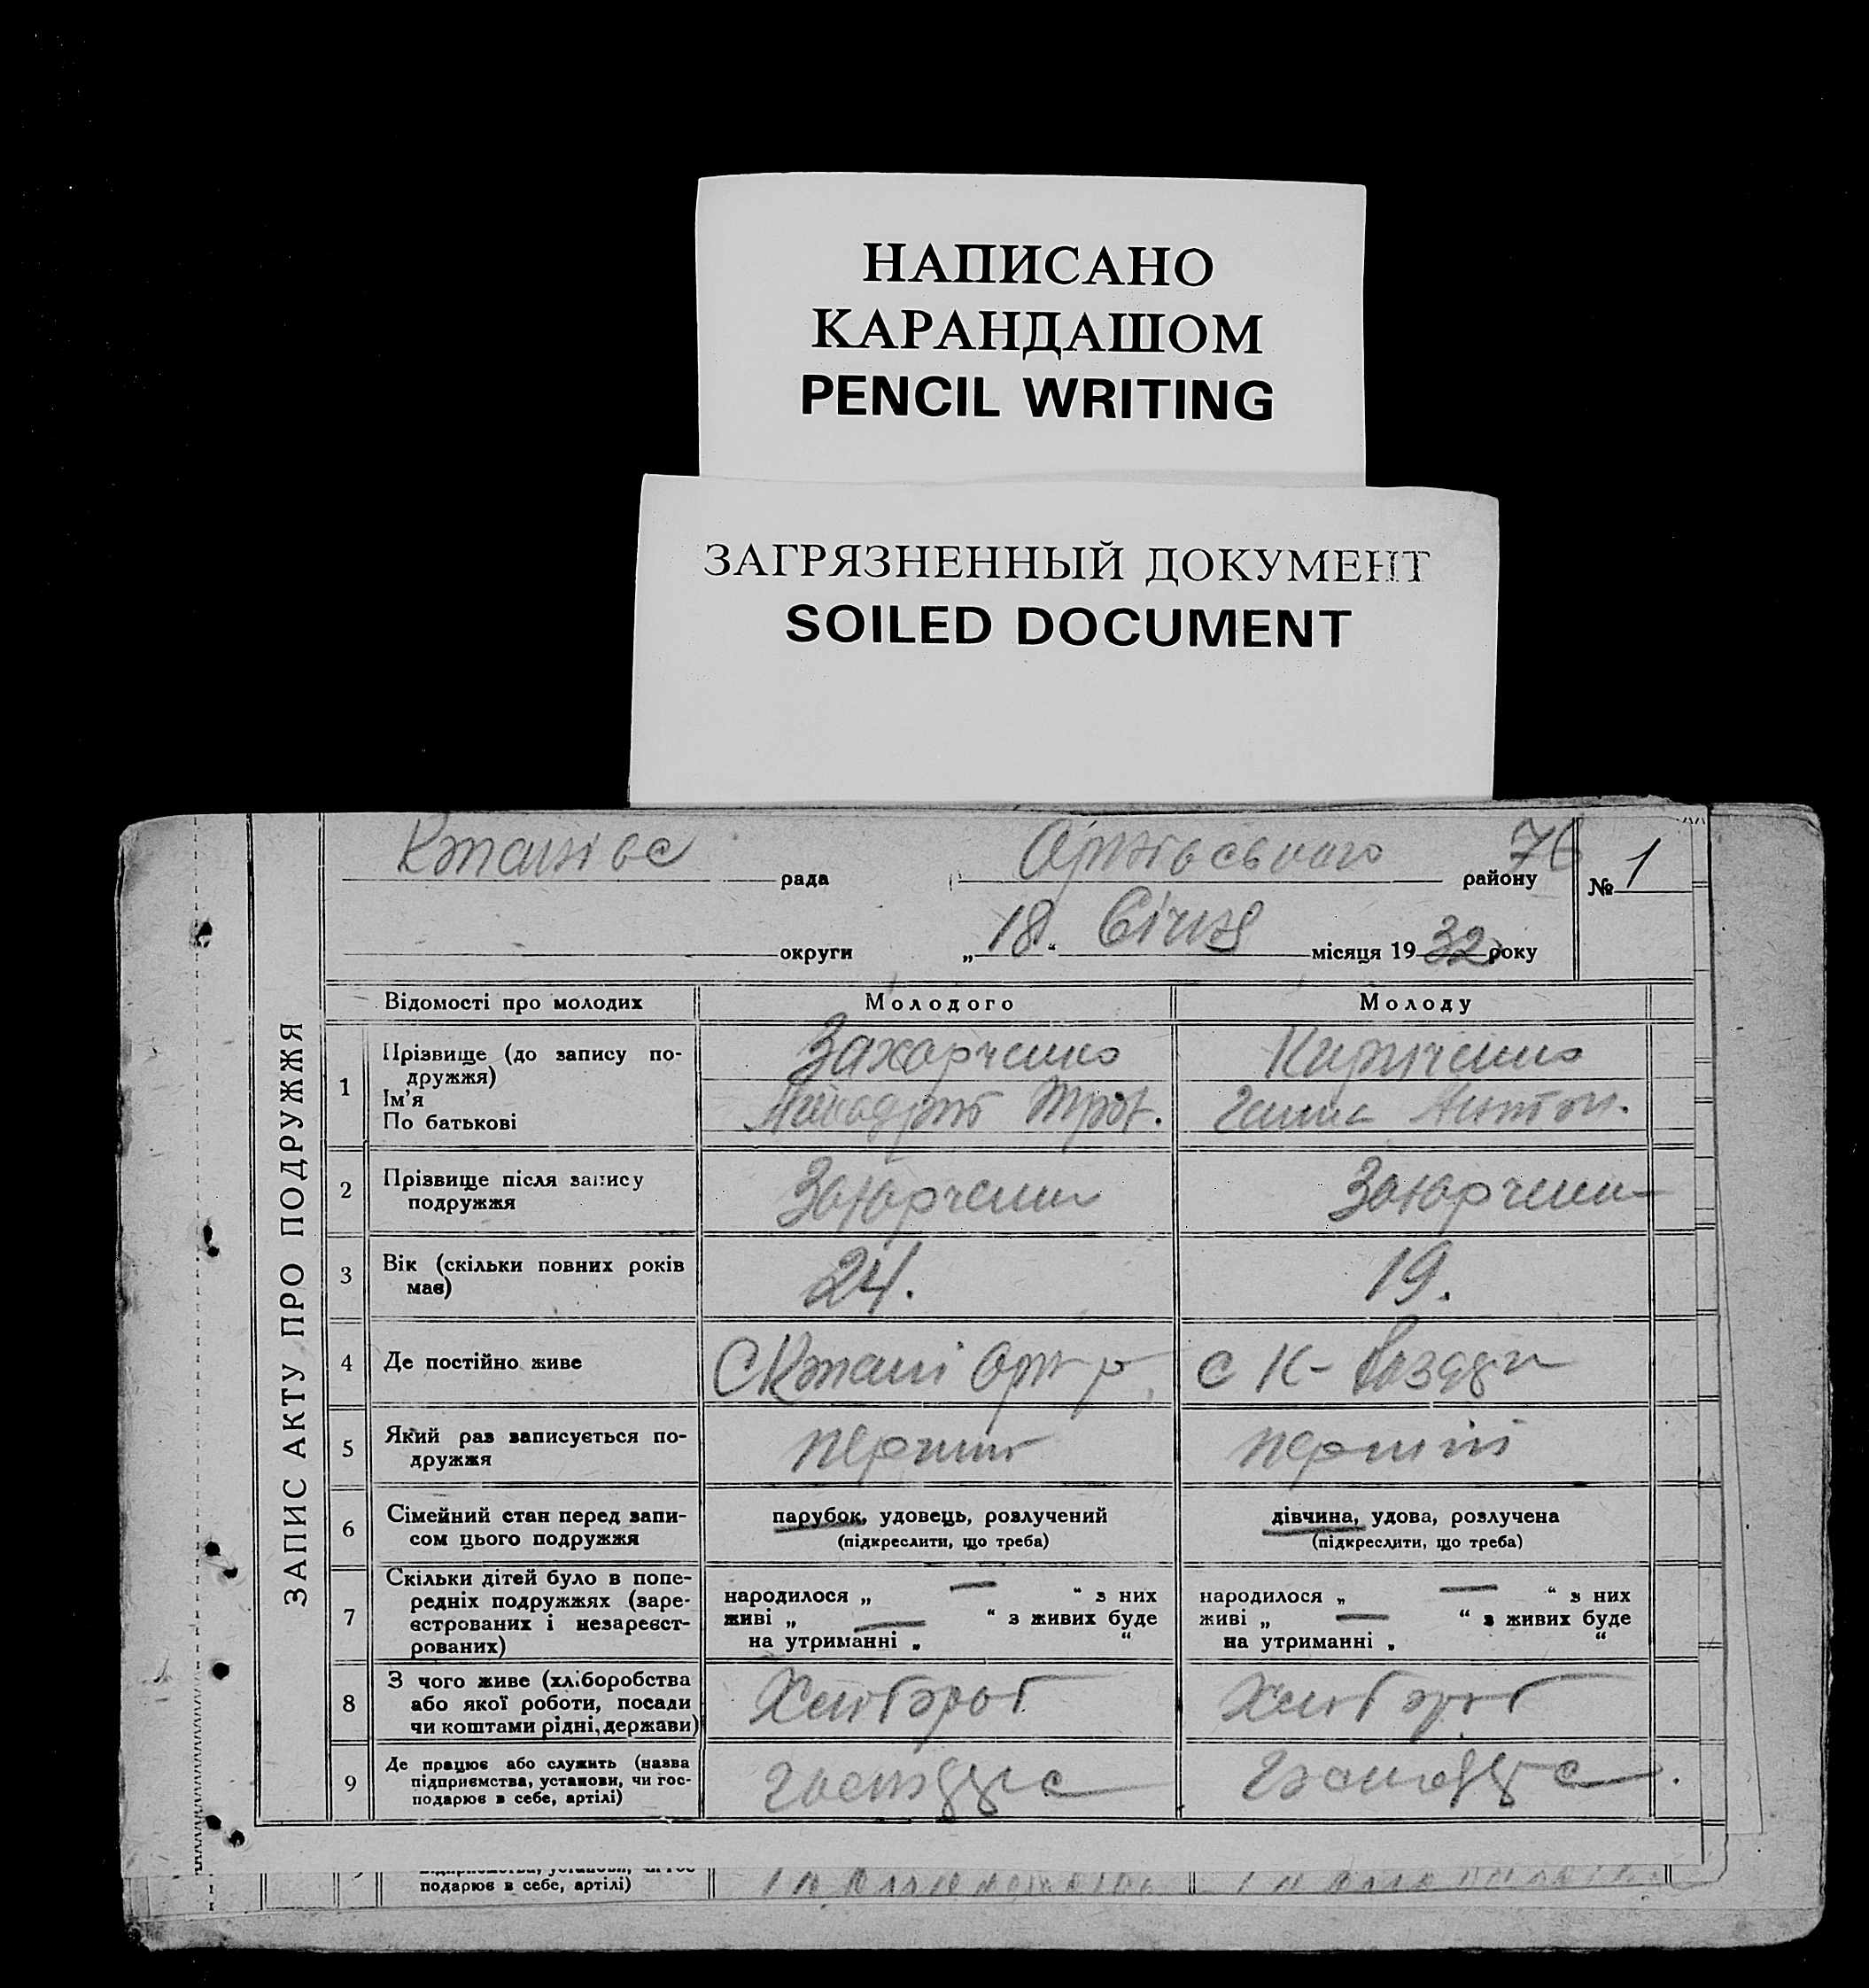 НАПИСАНО
КАРАНДАШОМ
PENCIL WRITING
ЗАГРЯЗНЕННЫЙ ДОКУМЕНТ
SOILED DOCUMENT
ЗАПИС АКТУ ПРО ПОДРУЖЖЯ
рада району 76 № 1
округи „18“ Січня місяця 1932 року
Відомості про молодих Молодого Молоду
1 Прізвище (до запису по-
дружжя) Захарченко Кириченко
Ім'я
По батькові
2 Прізвище після запису
подружжя
3 Вік (скільки повних років
має) 24. 19.
4 Де постійно живе
5 Який раз записується по-
дружжя перший перший
6 Сімейний стан перед запи-
сом цього подружжя
парубок, удовець, розлучений
(підкреслити, що треба)
дівчина, удова, розлучена
(підкреслити, що треба)
7 Скільки дітей було в попе-
редніх подружжях (заре-
єстрованих і незареєст-
рованих)
народилося „ — “ з них
живі „ — “ з живих буде
на утриманні „ “
народилося „ — “ з них
живі „ — “ з живих буде
на утриманні „ “
8 З чого живе (хліборобства
або якої роботи, посади
чи коштами рідні, держави)
9 Де працює або служить (назва
підприємства, установи, чи гос-
подарює в себе, артілі)
подарює в себе, артілі)